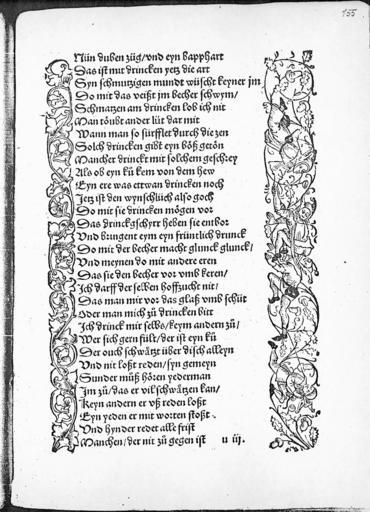 155
Nün duben züg/vnd eyn bapphart
Das ist nut drincken yetz die art
Syn schmutzigen mundt wüscht keyner jm
Do mit das veißt jm becher schwym/
Schmatzen am drincken lob ich nit
Man töubt ander lüt dar mit
Wann man so sürfflet durch die zen
Solch drincken gibt eyn böß getön
Mancher drinckt mit solchem geschrey
Als ob eyn kü kem von dem hew
Eyn ere was ettwan drincken noch
Jetz ist den wynschlüch also goch
Do mit sie drincken mögen vor
Das drinckgschyrr heben sie entbor
Vnd bringent eym eyn früntlich drunck
Do mit der becher macht glunck glunck/
Vnd meynen do mit andere eren
Das sie den becher vor vmb keren/
Jch darff der selben hoffzucht nit/
Das man mir vor das glaß vmb schüt
Oder man mich zü drincken bitt
Jch drinck mit selbs/keym andern zü/
Wer sich gern füllt/der ist eyn kü
Der ouch schwätzt über disch alleyn
Vnd nit loßt reden/syn gemeyn
Sunder müß hören yederman
Jm zü/das er vil schwätzen kan/
Keyn andern er vß reden loßt
Eyn yeden er mit worten stoßt
Vnd hynder redet alle frist
Manchen/der nit zü gegen ist u iij.